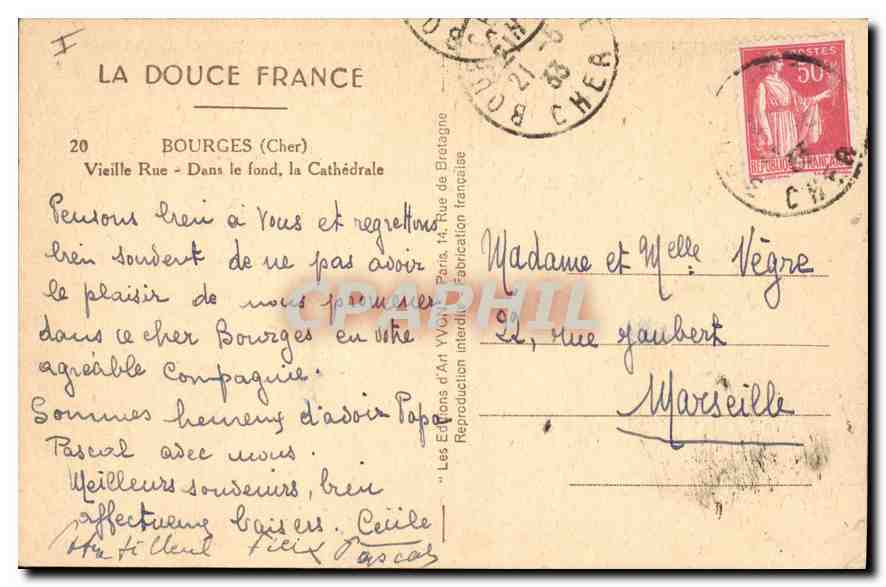 I
LA DOUCE FRANCE
20 BOURGES (Cher)
Vieille Rue - Dans le fond, la Cathédrale
Pensons bien à Vous et regrettons
bien souvent de ne pas avoir
le plaisir de nous promener
dans ce cher Bourges en votre
agréable Compagnie.
Sommes heureux d'avoir Papa
Pascal avec nous.
Meilleurs souvenirs, bien
affectueux baisers. Cécile
filleul Felix Pascal
"Les Editions d'Art YVON" Paris, 14, Rue de Bretagne
Reproduction interdite Fabrication française
BOURGES
21 -5
33
CHER
POSTES
50c
REPUBLIQUE FRANÇAISE
CHER
Madame et Melle Vègre
22, rue Jaubert
Marseille
CPAPHIL